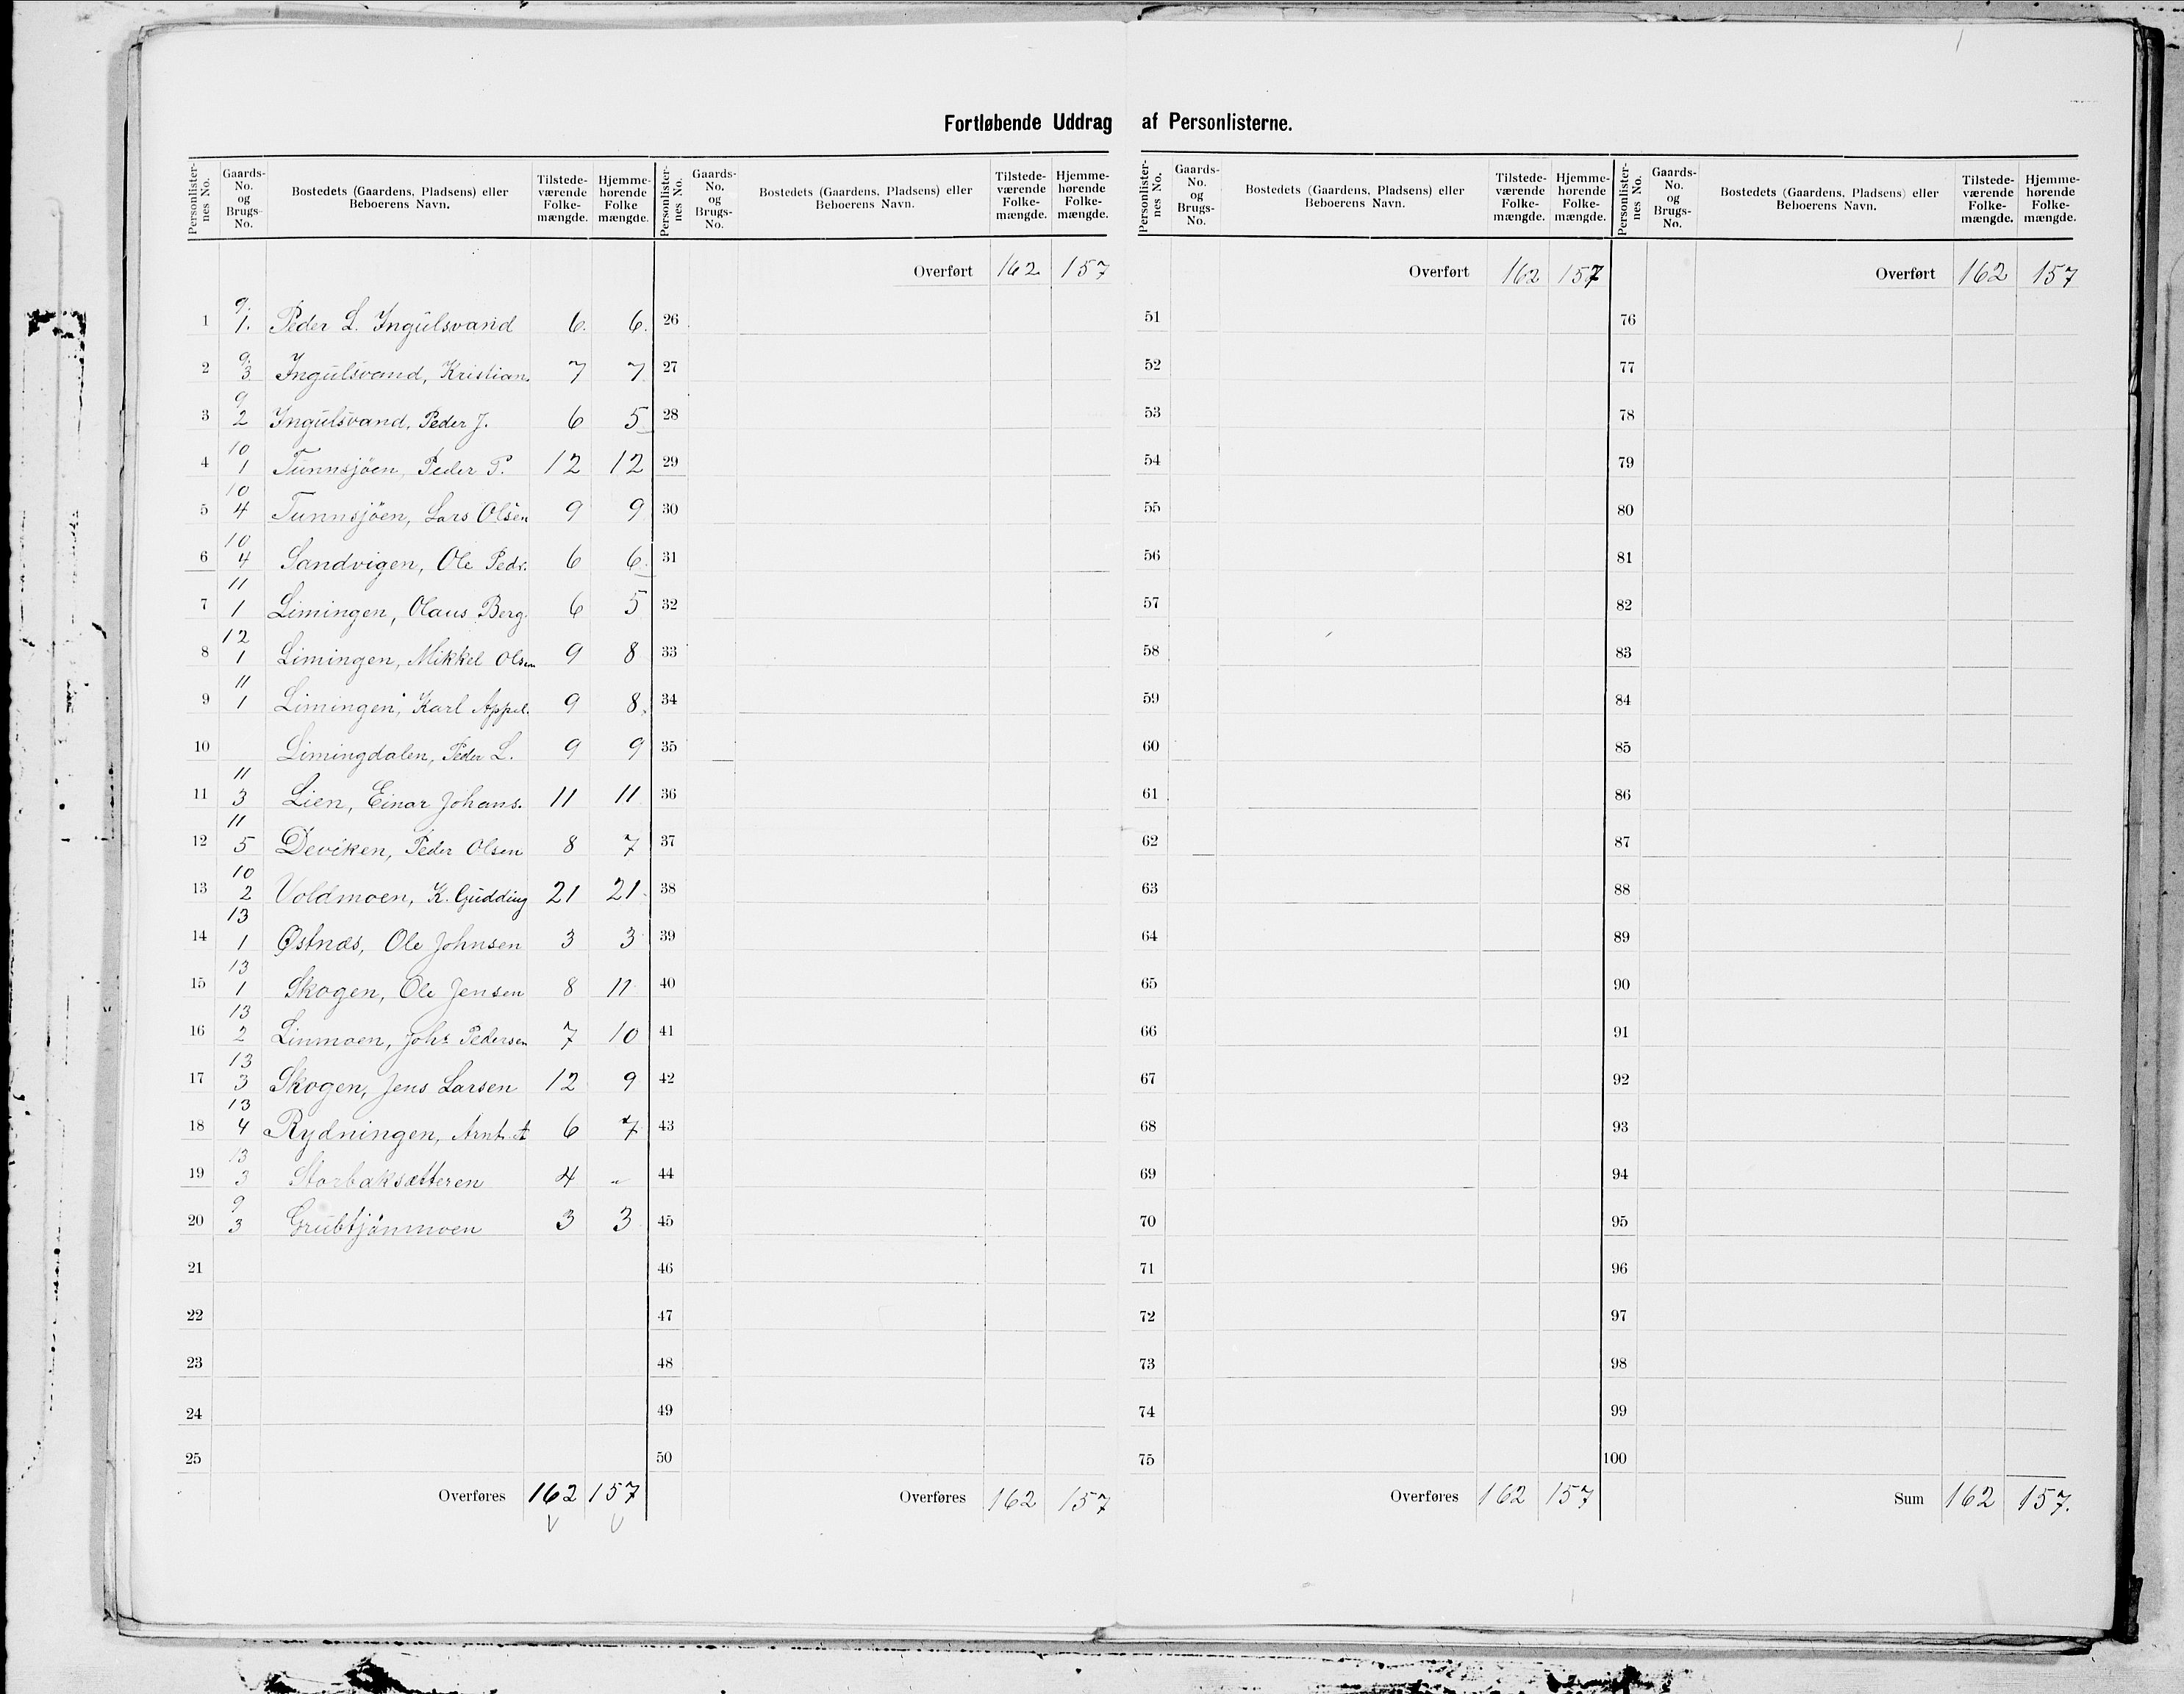 Fortløbende Uddrag af Personlisterne.
Personlisternes No. | Gaards-No. og Brugs-No. | Bostedets (Gaardens, Pladsens) eller Beboerens Navn. | Tilstedeværende Folkemængde. | Hjemmehørende Folkemængde.
1 | 9. 1. | Peder L. Ingulsvand | 6. | 6.
2 | 9. 3 | Ingulsvand, Kristian. | 7 | 7
3 | 9 2 | Ingulsvand, Peder J. | 6 | 5
4 | 10 1 | Tunnsjöen, Peder P. | 12 | 12
5 | 10 4 | Tunnsjöen, Lars Olsen | 9 | 9
6 | 10 4 | Sandvigen, Ole Peds. | 6 | 6.
7 | 11 1 | Limingen, Olaus Berg. | 6 | 5
8 | 12 1 | Limingen, Mikkel Olsen | 9 | 8
9 | 11 1 | Limingen, Karl Appel. | 9 | 8.
10 | Limingdalen, Peder L. | 9 | 9
11 | 11 3 | Lien, Einar Johans. | 11 | 11
12 | 11 5 | Deviken, Peder Olsen | 8 | 7
13 | 10 2 | Voldmoen, K. Gudding | 21 | 21
14 | 13 1 | Østnæs, Ole Johnsen | 3 | 3
15 | 13 1 | Skogen, Ole Jensen | 8 | 11
16 | 13 2 | Linmoen, Johs Pedersen | 7 | 10
17 | 13 3 | Skogen, Jens Larsen | 12 | 9
18 | 13 4 | Rydningen, Arnt A | 6 | 7
19 | 13 3 | Storbaksætteren | 4 | "
20 | 9 3 | Grubtjönmoen | 3 | 3
21
22
23
24
25
Overføres 162 157
Personlisternes No. | Gaards-No. og Brugs-No. | Bostedets (Gaardens, Pladsens) eller Beboerens Navn. | Tilstedeværende Folkemængde. | Hjemmehørende Folkemængde.
Overført 162 157
26
27
28
29
30
31
32
33
34
35
36
37
38
39
40
41
42
43
44
45
46
47
48
49
50
Overføres 162 157
Personlisternes No. | Gaards-No. og Brugs-No. | Bostedets (Gaardens, Pladsens) eller Beboerens Navn. | Tilstedeværende Folkemængde. | Hjemmehørende Folkemængde.
Overført 162 157
51
52
53
54
55
56
57
58
59
60
61
62
63
64
65
66
67
68
69
70
71
72
73
74
75
Overføres 162 157
Personlisternes No. | Gaards-No. og Brugs-No. | Bostedets (Gaardens, Pladsens) eller Beboerens Navn. | Tilstedeværende Folkemængde. | Hjemmehørende Folkemængde.
Overført 162 157
76
77
78
79
80
81
82
83
84
85
86
87
88
89
90
91
92
93
94
95
96
97
98
99
100
Sum 162 157.